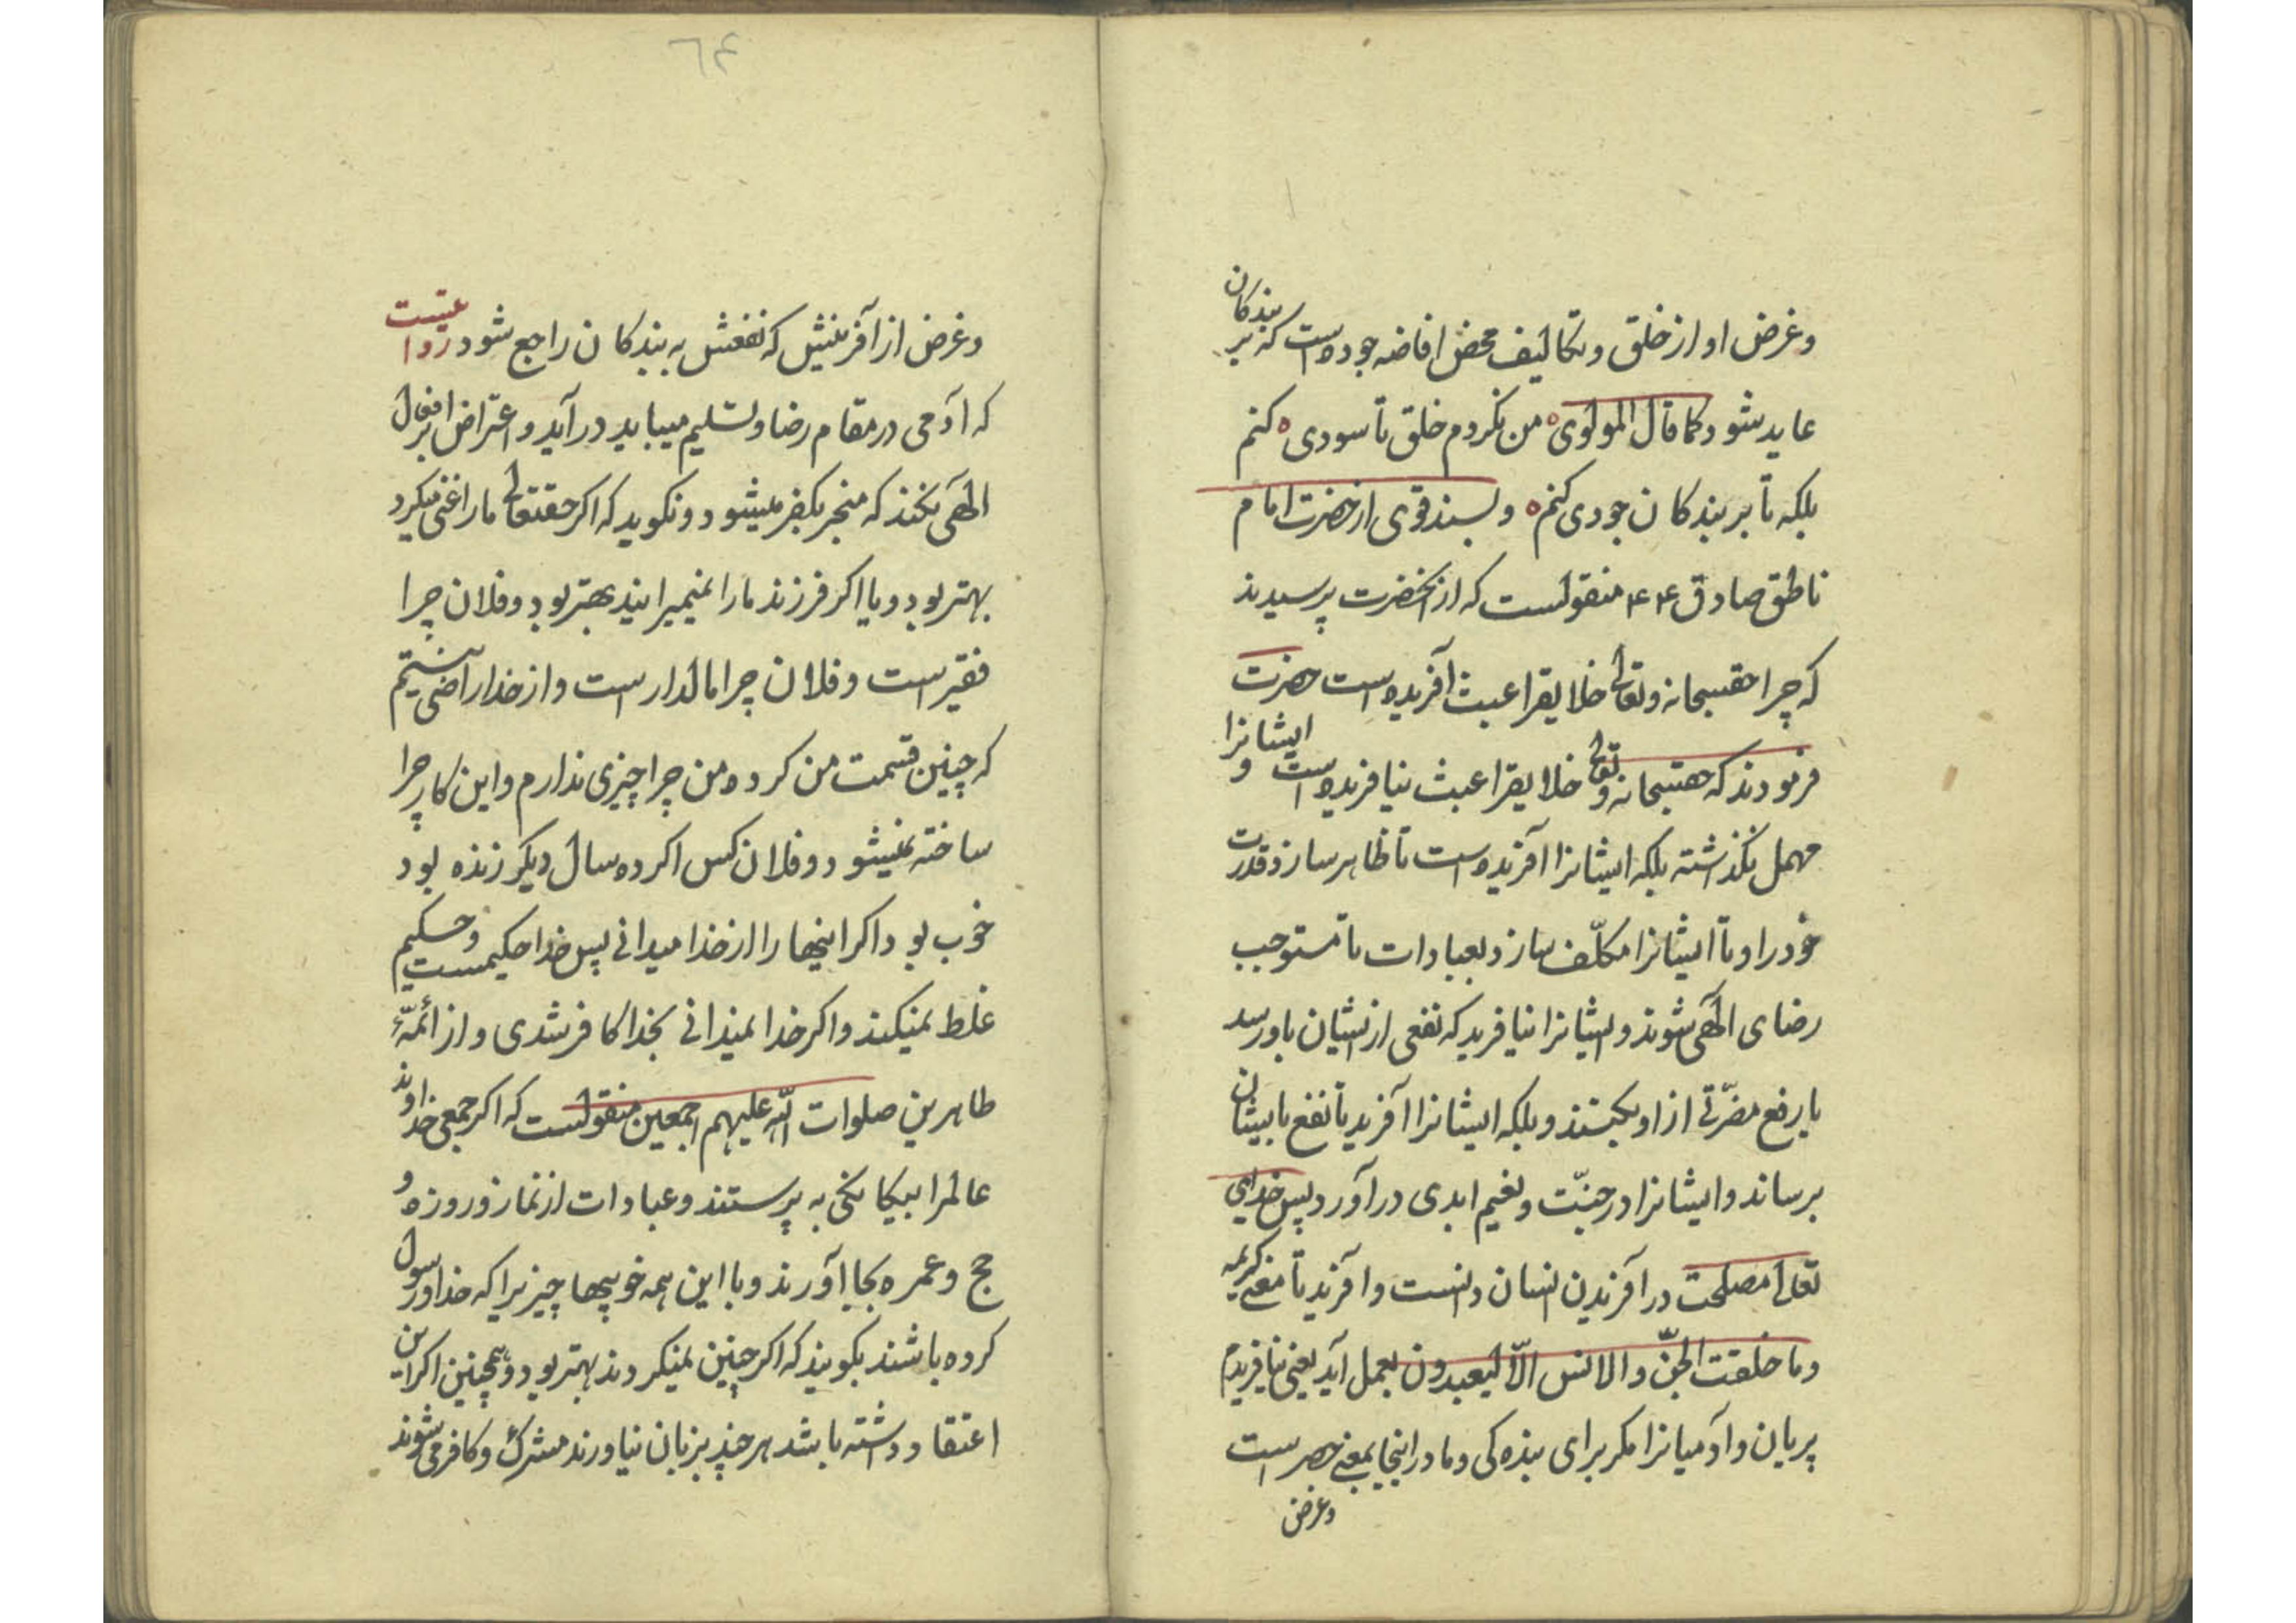 وغرض او از خلق و تکالیف محض افاضه جوده است که بر بندکان
عاید شود کما قال المولوی ه من نکردم خلق تا سودی ه کنم
بلکه تا بر بندکان جودی کنم ه و بسند قوی از حضرت امام
ناطق صادق ع۴ منقولست که از آنحضرت پرسیدند
که چرا حقسبحانه وتعالی خلایقرا عبث آفریده است حضرت
فرمودند که حقسبحانه وتعالی خلایقرا عبث نیافریده است و ایشانرا
مهمل نکذاشته بلکه ایشانرا آفریده است تا ظاهر سازد قدرت
خود را و تا ایشانرا مکلّف سازد بعبادات تا مستوجب
رضای الٓهی شوند و ایشانرا نیافرید که نفعی از ایشان باو رسد
یا رفع مضرّتی از او بکنند و بلکه ایشانرا آفرید تا نفع بایشان
برساند و ایشانرا در جنّت و نعیم ابدی در آورد پس خدای
تعالی مصلحت در آفریدن انسان دانست و آفرید تا معنی کریمه
وما خلقت الجنّ والانس الّا لیعبدون بعمل آید یعنی نیافریدم
پریان و آدمیانرا مکر برای بنده کی و ما در اینجا بمعنی حصر است
وغرض
۶۴
وغرض از آفرینش که نفعش به بندکان راجع شود روا عیست
که آدمی در مقام رضا و تسلیم میباید در آید و اعتراض بر افعال
الٓهی نکند که منجر بکفر میشود و نکوید که اکر حقتعالی ما را غنی میکرد
بهتر بود و یا اکر فرزند ما را نمیمیرانید بهتر بود و فلان چرا
فقیر است و فلان چرا مالدار است و از خدا راضی نیستیم
که چنین قسمت من کرده من چرا چیزی ندارم و این کار چرا
ساخته نمیشود و فلان کس اکر ده سال دیکر زنده بود
خوب بود اکر اینها را از خدا میدانی پس خدا حکیمست و حکیم
غلط نمیکند و اکر خدا نمیدانی بخدا کافر شدی و از ائمّهٔ
طاهرین صلوات اللّه علیهم اجمعین منقولست که اکر جمعی خداوند
عالمرا بیکانکی به پرستند و عبادات از نماز و روزه و
حج و عمره بجا آورند و با این همه خوبیها چیزیرا که خدا و رسول
کرده باشند بکویند که اکر چنین نمیکردند بهتر بود و همچنین اکر این
اعتقاد داشته باشد هر چند بزبان نیاورند مشرک و کافر می شوند